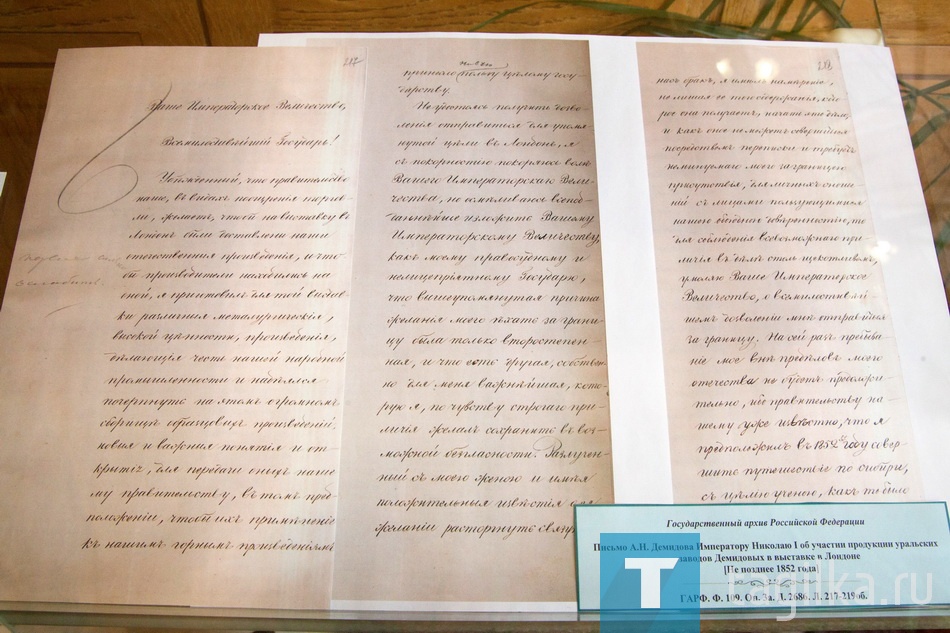 217
Ваше Императорское Величество,
Всемилостивейший Государь!
Убежденный, что правительство
наше, въ видахъ поощренія торгов-
ли, желаетъ, чтобъ на выставку въ
Лондонъ были доставлены наши
отечественныя произведенія, и что-
бъ производители находились на
оной, я приготовилъ для той выстав-
ки различныя металургическія,
высокой ценности, произведенія,
делающія честь нашей народной
промышленности и надеялся
почерпнуть на этомъ огромномъ
сборище образцовыхъ произведеній,
новыя и важныя понятія и от-
крытія, для передачи оныхъ наше-
му правительству, въ томъ пред-
положеніи, чтобъ ихъ примененіе
къ нашимъ горнымъ произведеніямъ
принесло пользу целому госу-
дарству.
Не успевъ получить дозво-
ленія отправиться для упомя-
нутой цели въ Лондонъ, я
съ покорностію покоряюсь воле
Вашего Императорскаго Вели-
чества, но осмеливаюсь всепод-
даннейше изложить Вашему
Императорскому Величеству,
какъ моему правосудному и
нелицепріятному Государю,
что вышеупомянутая причина
желанія моего ехать за грани-
цу была только второстепен-
ная, и что есть другая, собствен-
но для меня важнейшая, кото-
рую я, по чувству строгаго при-
личія желалъ сохранить въ воз-
можной безгласности. Разлучен-
ный съ моею женою и имея
положительныя известія о
желаніи расторгнуть связую-
219
насъ бракъ, я имелъ намереніе,
не лишая ее того содержанія, кото-
рое она получаетъ, начать это дело,
и какъ оное не можетъ совершиться
посредствомъ переписки и требуетъ
неминуемаго моего за границею
присутствія, для личныхъ сноше-
ній съ лицами пользующимися
нашею
доверенностію, то
для соблюденія всевозможнаго при-
личія въ деле столь щекотливомъ,
умоляю Ваше Императорское
Величество, о всемилостивей-
шемъ дозволеніи мне отправиться
за границу. На сей разъ пребыва-
ніе мое вне пределовъ моего
отечества не будетъ продолжи-
тельно, ибо правительству на-
шему уже известно, что я
предположилъ въ 1852 году совер-
шить путешествіе по Сибири,
съ целію ученою, какъ то было
Государственный архив Российской Федерации
Письмо А.Н. Демидова Императору Николаю I об участии продукции уральских
заводов Демидовых в выставке в Лондоне
[Не позднее 1852 года]
ГАРФ. Ф. 109. Оп. 3а. Д. 2686. Л. 217-219об.
T tagilka.ru